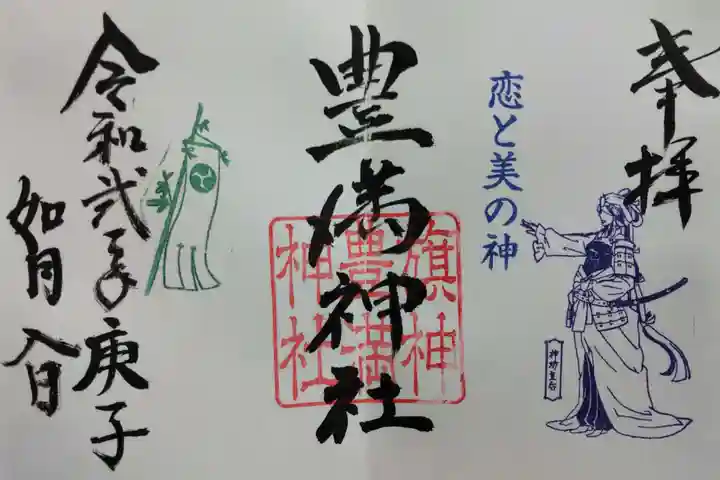 奉拝
恋と美の神
神功皇后
豊満神社
旗神
豊満
神社
令和弐年庚子
如月 八日